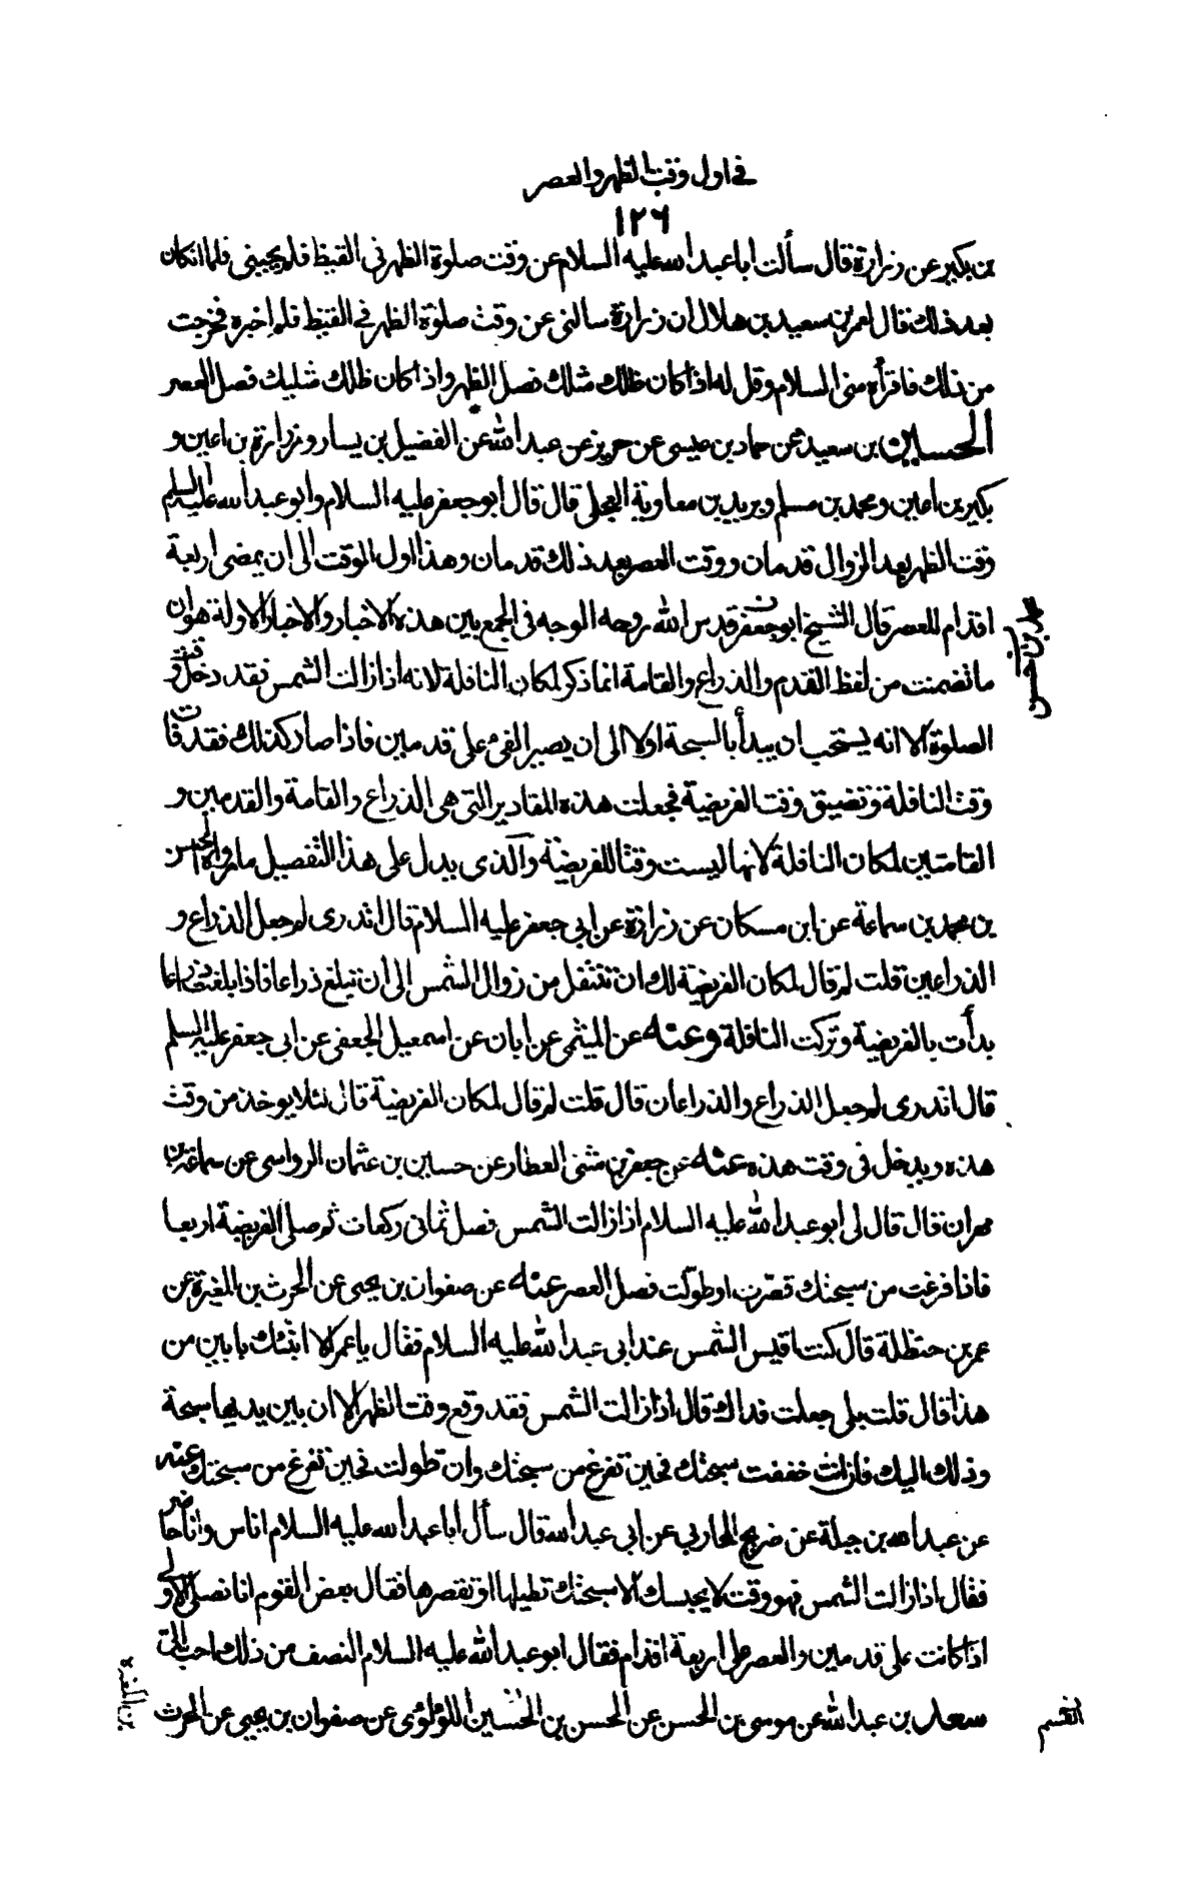 في اول وقت الظهر والعصر
١٢٦
بن بكير عن زرارة قال سألت ابا عبد الله عليه السلام عن وقت صلوة الظهر في القيظ فلم يجبني فلما ان كان
بعد ذلك قال لعمر بن سعيد بن هلال ان زرارة سالني عن وقت صلوة الظهر في القيظ فلم اخبره فخرجت
من ذلك فاقرأه مني السلام وقل له اذا كان ظلك مثلك فصل الظهر واذا كان ظلك مثليك فصل العصر
الحسين بن سعيد عن حماد بن عيسى عن حريز عن عبد الله عن الفضيل بن يسار وزرارة بن اعين و
بكير بن اعين ومحمد بن مسلم وبريد بن معاوية العجلي قال قال ابو جعفر عليه السلام وابو عبد الله عليه السلم
وقت الظهر بعد الزوال قدمان ووقت العصر بعد ذلك قدمان وهذا اول الوقت الى ان يمضي اربعة
اقدام للعصر قال الشيخ ابو جعفر قدس الله روحه الوجه في الجمع بين هذه الاخبار والاخبار الاولة هو ان
ما تضمنت من لفظ القدم والذراع والقامة انما ذكر لمكان النافلة لانه اذا زالت الشمس فقد دخل وقت
الصلوة الا انه يستحب ان يبدأ بالسبحة اولا الى ان يصير الفيء على قدمين فاذا صار كذلك فقد فات
وقت النافلة وتضيق وقت الفريضة فجعلت هذه المقادير التي هي الذراع والقامة والقدمين و
القامتين لمكان النافلة لانها ليست وقتا للفريضة والذي يدل على هذا التفصيل ما رواه الحسن
بن محمد بن سماعة عن ابن مسكان عن زرارة عن ابي جعفر عليه السلام قال اتدرى لم جعل الذراع و
الذراعين قلت لم قال لمكان الفريضة لك ان تتنفل من زوال الشمس الى ان تبلغ ذراعا فاذا بلغت ذراعا
بدأت بالفريضة وتركت النافلة وعنه عن الميثمي عن ابان عن اسمعيل الجعفي عن ابي جعفر عليه السلم
قال اتدرى لم جعل الذراع والذراعان قال قلت لم قال لمكان الفريضة قال لئلا يوخذ من وقت
هذه ويدخل في وقت هذه عنه عن جعفر بن مثنى العطار عن حسين بن عثمان الرواسي عن سماعة بن
مهران قال قال لي ابو عبد الله عليه السلام اذا زالت الشمس فصل ثماني ركعات ثم صلى الفريضة اربعا
فاذا فرغت من سبحتك قصرت او طولت فصل العصر عنه عن صفوان بن يحيى عن الحرث بن المغيرة عن
عمر بن حنظلة قال كنت اقيس الشمس عند ابي عبد الله عليه السلام فقال يا عمر الا انبئك بابين من
هذا قال قلت بلى جعلت فداك قال اذا زالت الشمس فقد وقع وقت الظهر الا ان بين يديها سبحة
وذلك اليك فان انت خففت سبحتك فحين تفرغ من سبحتك وان طولت فحين تفرغ من سبحتك وعنه
عن عبد الله بن جبلة عن ذريح المحاربي عن ابي عبد الله قال سأل ابا عبد الله عليه السلام اناس وانا حاضر
فقال اذا زالت الشمس فهو وقت لا يحبسك الا سبحتك تطيلها او تقصرها فقال بعض القوم انا نصلى الاولى
اذا كانت على قدمين والعصر على اربعة اقدام فقال ابو عبد الله عليه السلام النصف من ذلك احب الى
سعد بن عبد الله عن موسى بن الحسن عن الحسن بن الحسين اللؤلؤى عن صفوان بن يحيى عن الحرث
بن المغيرة